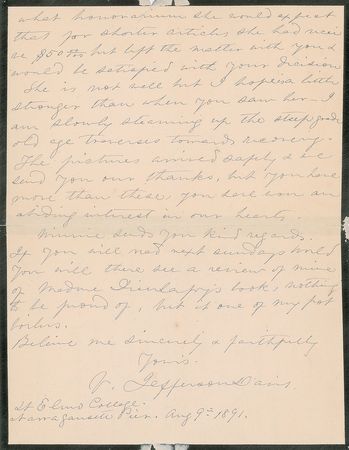 what honorarium she would expect
that for shorter articles she had recei
ve $50 but left the matter with you &
would be satisfied with your decision
She is not well but I hope is a little
stronger than when you saw her. I
am slowly steaming up the steep grade
old age traverses towards recovery.
The pictures arrived safely & we
send you our thanks, but you have
more than these, you have won an
abiding interest in our hearts.
Winnie sends you kind regards.
If you will read next sundays World
you will there see a review of mine
of Madme book, nothing
to be proud of, but it one of my pot
boilers.
Believe me sincerely & faithfully
Yours.
V. Jefferson Davis.
St Elmo Cottage.
Narragansett Pier. Aug 9th 1891.